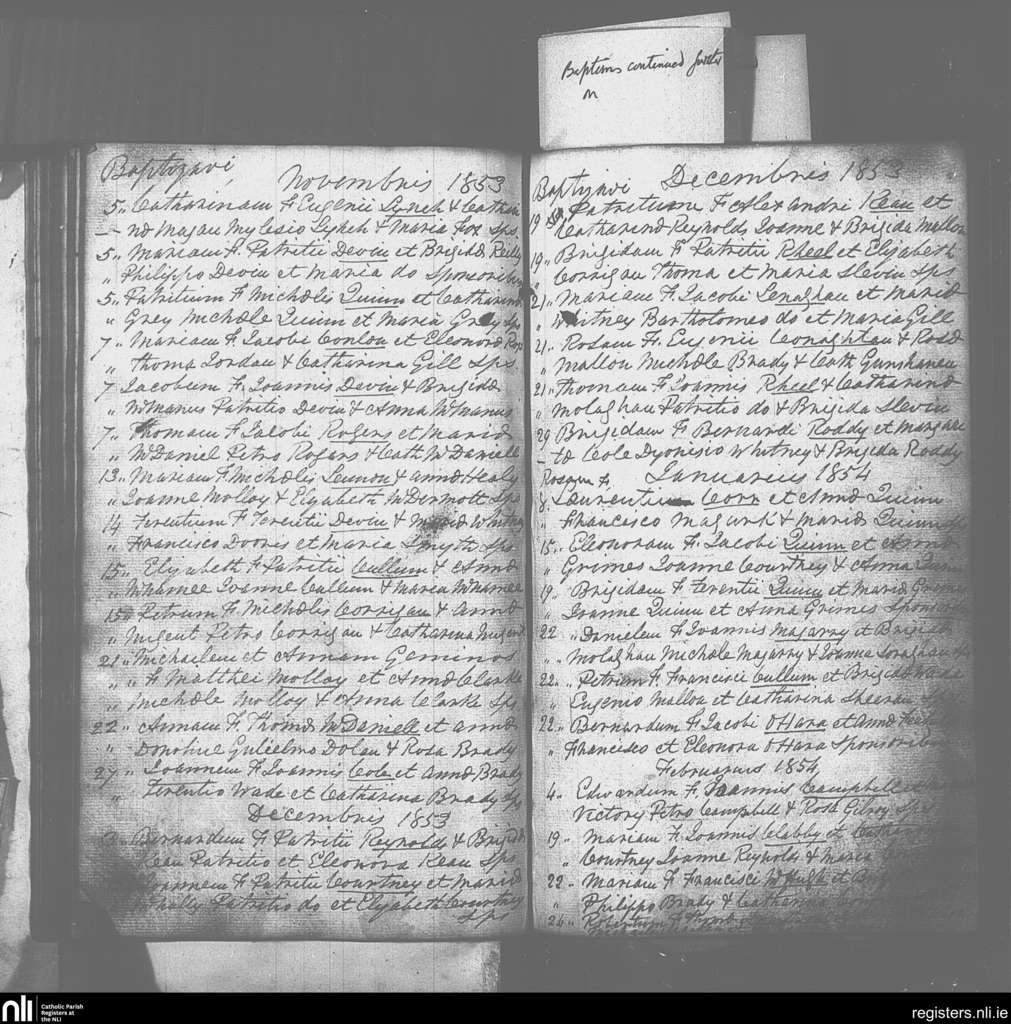 Baptisms continued further
on
Baptizavi Novembris 1853
5 „ Catharinam F Eugenii Lynch & Cathari
— na Magau Mylesio Lynch & Maria Fox Sps
5 „ Mariam F. Patritii Devin et Brigida Reilly
„ Philippo Devin et Maria do Sponsoribus
5 „ Patritium F Michælis Quinn et Catharina
„ Grey Michæle Quinn et Maria Grey Sps
7 „ Mariam F. Jacobi Conlon et Eleonora
„ Thoma Jordan & Catharina Gill Sps.
7 „ Jacobum F. Joannis Devin & Brigida
„ McManus Patritio Devin & Anna McManus
7 „ Thomam F Jacobi Rogers et Maria
„ McDaniel Petro Rogers & Cath McDaniell
13 „ Mariam F. Michælis Lennon & Anna Healy
„ Joanne Molloy & Elizabeth McDermott Sps
14 „ Terentium F Terentii Devin & Maria Whitney
„ Francisco Dooris et Maria Smyth Sps
15 „ Elyzabeth F Patritii Cullum & Anna
„ McNamee Joanne Cullum & Maria McNamee
15 „ Petrum F. Michælis Corrigan & Anna
„ Petro Corrigan & Catharina
21 „ Michaelem et Annam Geminos
„ F Matthei Molloy et Anna Clarke
„ Michæle Molloy & Anna Clarke Sps
22 „ Annam F. Thomæ McDaniell et Anna
„ Donohue Gulielmo Dolan & Rosa Brady
27 „ Joannem F. Joannis Cole et Anna Brady
„ Terentio Wade et Catharina Brady Sps
Decembris 1853
Bernardum F Patritii Reynolds & Brigida
Kean Patritio et Eleonora Kean Sps
Joannem F Patritii Courtney et Maria
Patritio do et Elyzabeth Courtney
Sps
Baptizavi Decembris 1853
19 Patritium F Alexandri Kean et
Catharina Reynolds Joanne & Brigida Mallon
19 „ Brigidam F Patritii Rheel et Elizabeth
Corrigan Thoma et Maria Slevin Sps
21 „ Mariam F. Jacobi Lenaghan et Maria
„ Whitney Bartholomeo do et Maria Gill
21 „ Rosam F. Eugenii Conaghtan & Rosa
„ Mallon Michæle Brady & Cath Gunshanan
21 „ Thomam F. Joannis Rheel & Catharina
„ Molaghan Patritio do & Brigida Slevin
29 Brigidam F Bernardi Roddy et Margare
— ta Cole Dyonisio Whitney & Brigida Roddy
Rosam F. Januarius 1854
8 „ Laurentii Corr et Anna Quinn
„ Francisco Magurk & Maria Quinn Sps
15 „ Eleonoram F. Jacobi Quinn et Anna
„ Grimes Joanne Courtney & Anna Quinn
19 „ Brigidam F Terentii Quinn et Maria Grimes
„ Joanne Quinn et Anna Grimes Sponsoribus
22 „ Danielem F. Joannis Magarry et Brigida
„ Molaghan Michæle Magarry & Joanna
22 „ Petrum F. Francisci Cullum et Brigida
„ Eugenio Mallon et Catharina Sheeran Sps
22 „ Bernardum F. Jacobi O'Hara et Anna
„ Francisco et Eleonora O'Hara Sponsoribus
Februarius 1854
4 „ Edwardum F. Joannis Campbell et
Victory Petro Campbell & Rosa Gilroy Sps
19 „ Mariam F. Joannis Clabby et Catharina
„ Courtney Joanne Reynolds & Maria
22 „ Mariam F Francisci McHugh et Brigida
„ Philippo Brady & Catharina
24 „ Robertum F. Thomæ
nli
Catholic Parish
Registers at
the NLI
registers.nli.ie